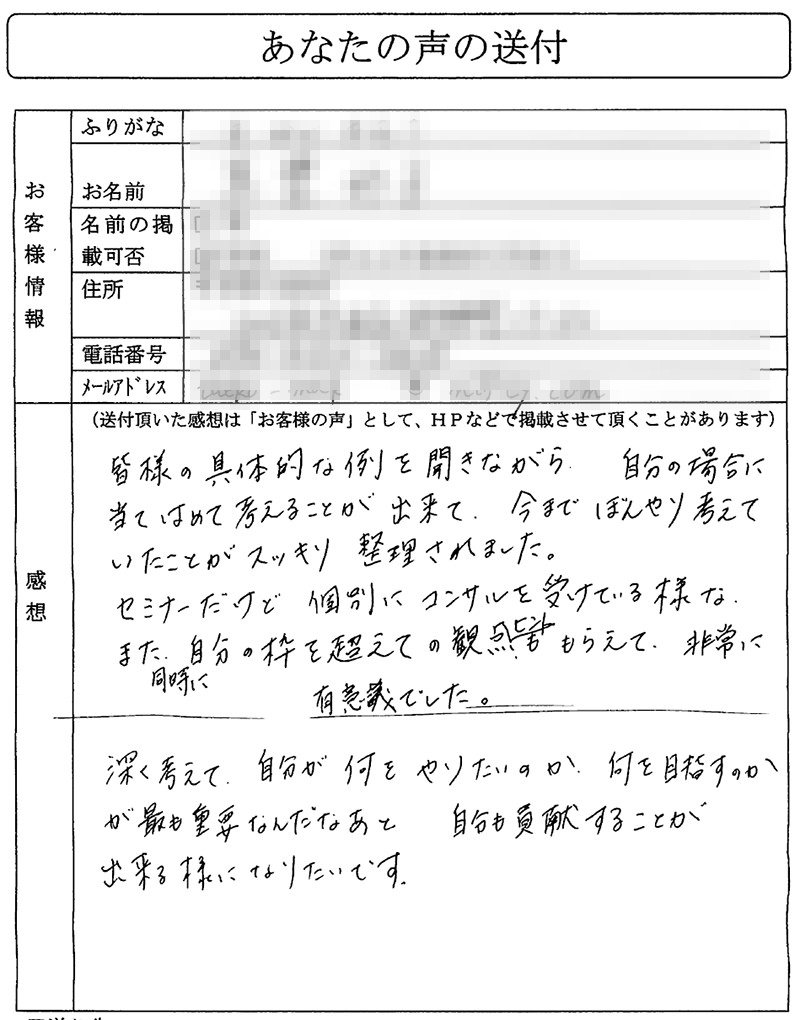 あなたの声の送付
お客様情報
ふりがな
お名前
名前の掲
載可否
住所
電話番号
メールアドレス
感想
(送付頂いた感想は「お客様の声」として、HPなどで掲載させて頂くことがあります)
皆様の具体的な例を聞きながら、自分の場合に
当てはめて考えることが出来て、今までぼんやり考えて
いたことがスッキリ整理されました。
セミナーだけど個別にコンサルを受けている様な、
また、自分の枠を超えての観点も もらえて、非常に
同時に
有意義でした。
深く考えて、自分が何をやりたいのか、何を目指すのか
が最も重要なんだなあと 自分も貢献することが
出来る様になりたいです。